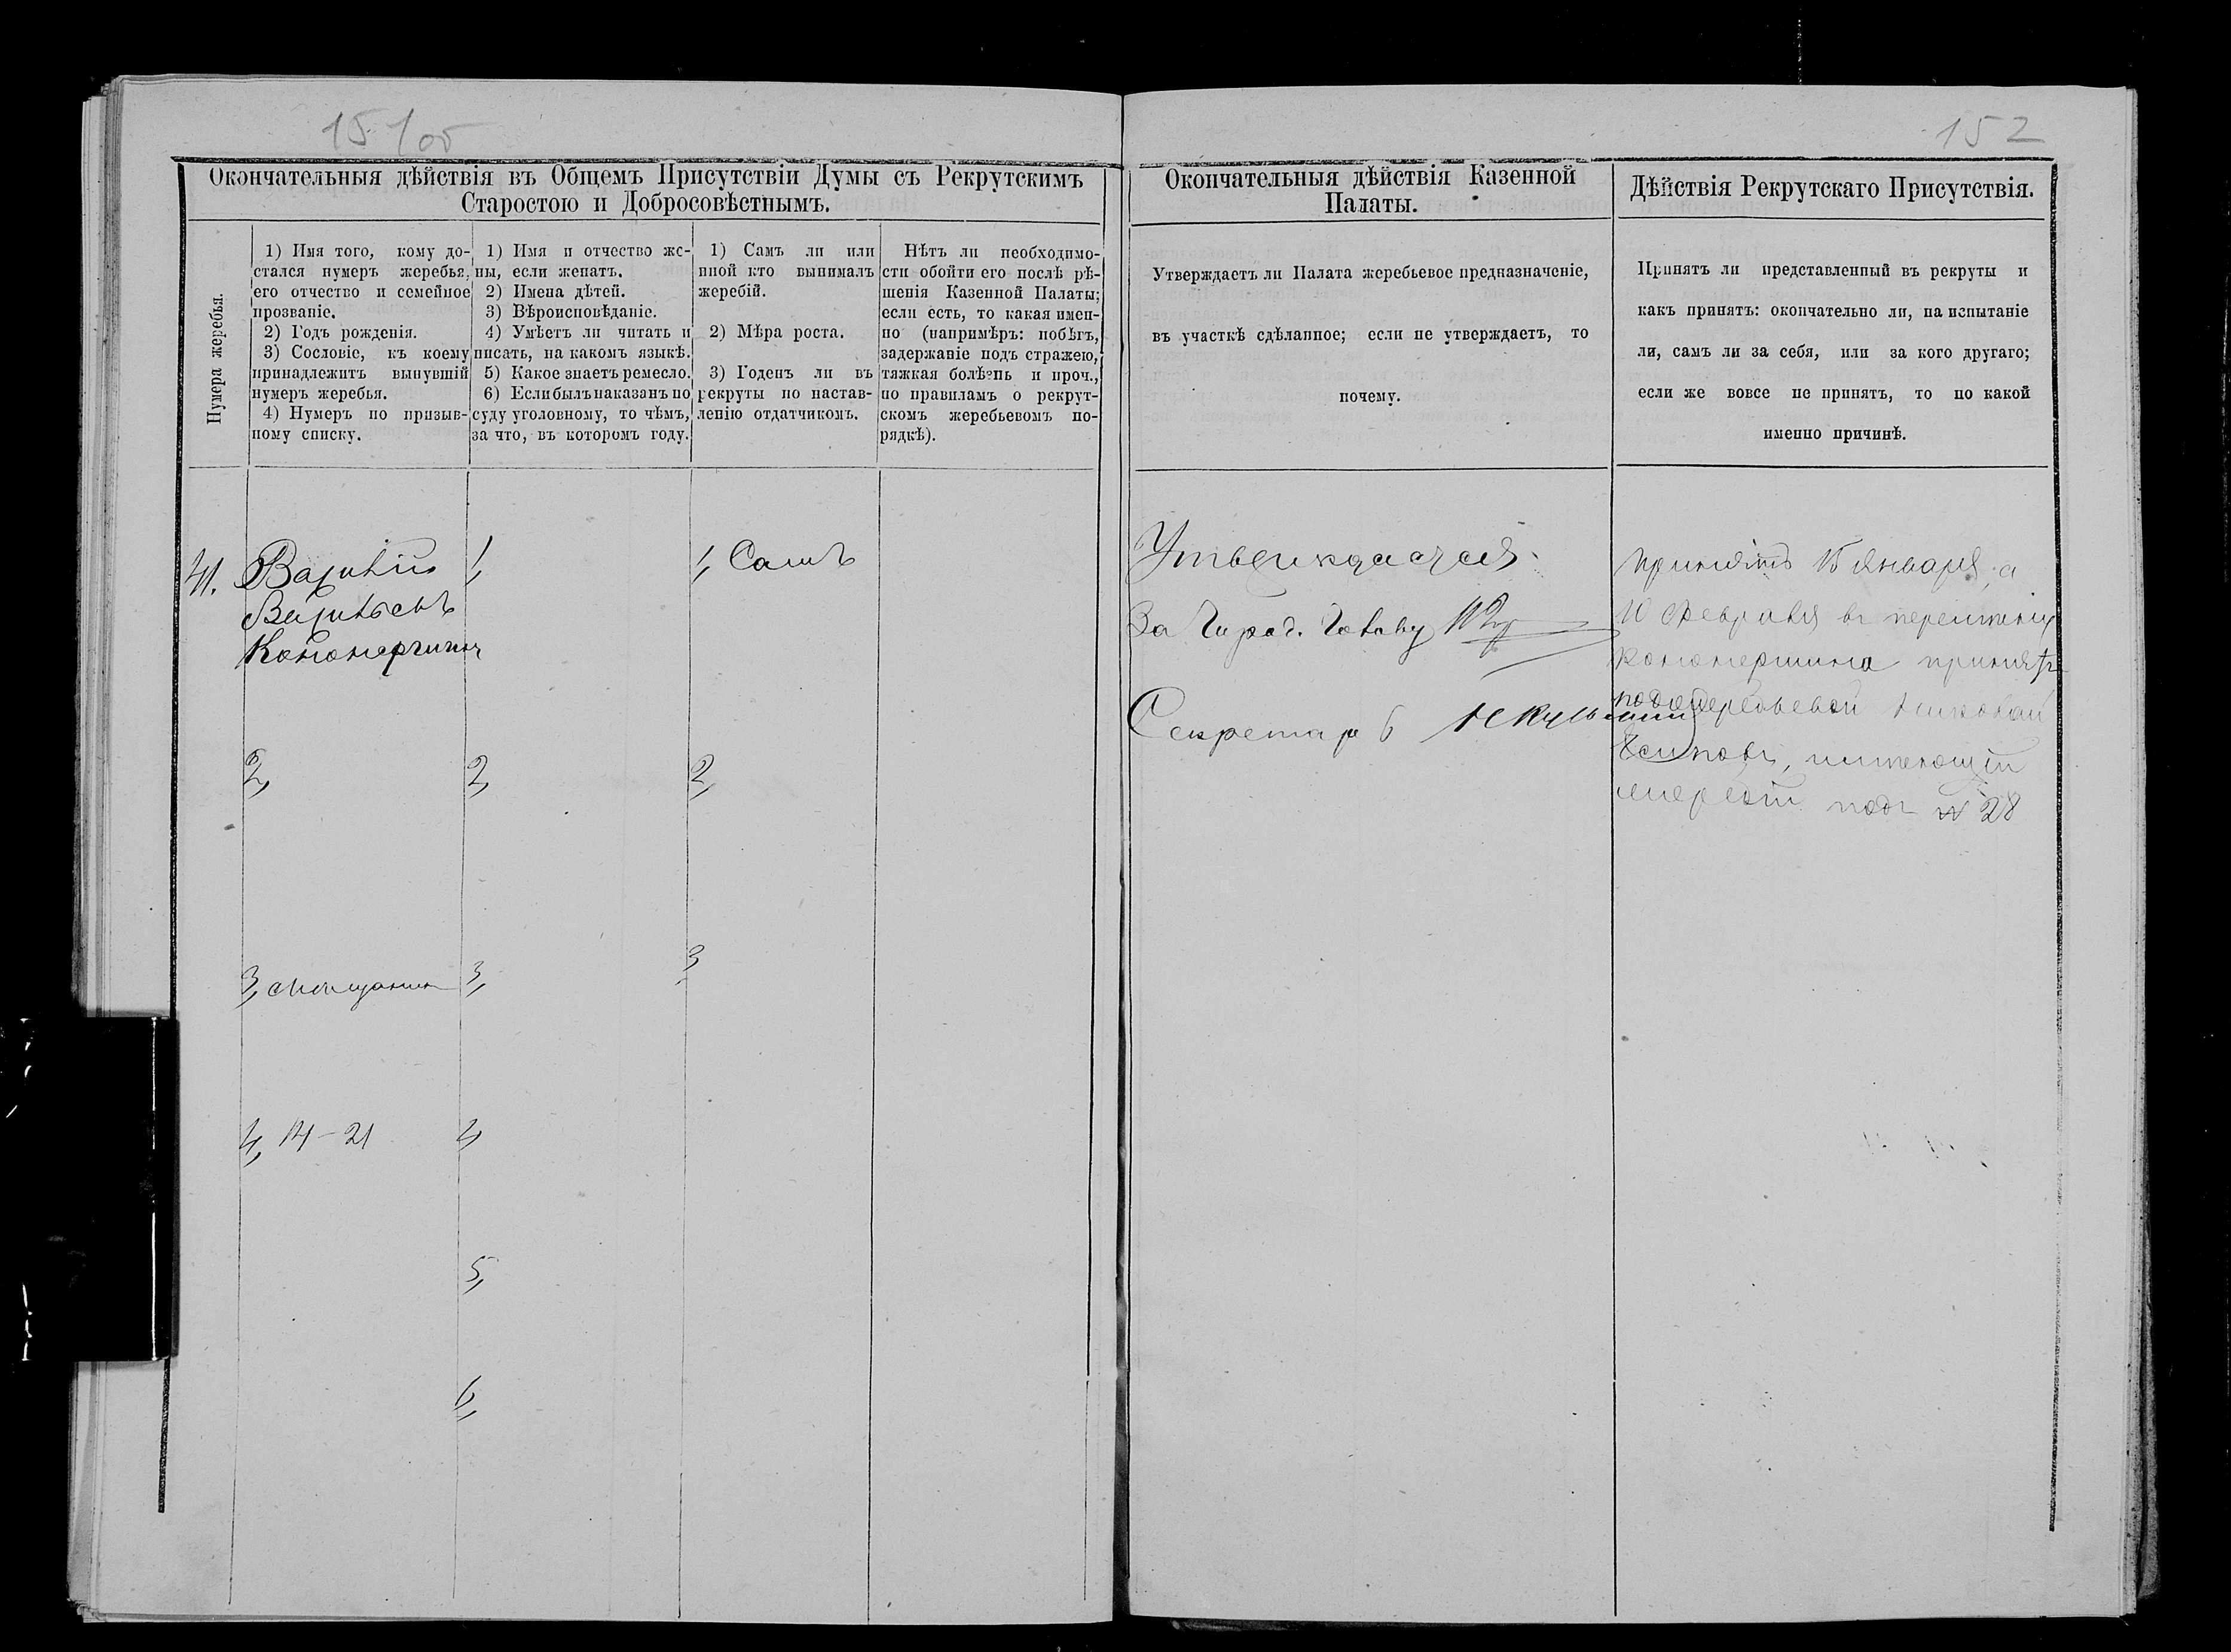 151об
152
Окончательныя дѣйствія въ Общемъ Присутствіи Думы съ Рекрутскимъ
Старостою и Добросовѣстнымъ.
Нумера жеребья.
1) Имя того, кому до-
стался нумеръ жеребья,
его отчество и семейное
прозваніе.
2) Годъ рожденія.
3) Сословіе, къ коему
принадлежитъ вынувшій
нумеръ жеребья.
4) Нумеръ по призыв-
ному списку.
1) Имя и отчество же-
ны, если женатъ.
2) Имена дѣтей.
3) Вѣроисповѣданіе.
4) Умѣетъ ли читать и
писать, на какомъ языкѣ.
5) Какое знаетъ ремесло.
6) Если былъ наказанъ по
суду уголовному, то чѣмъ,
за что, въ которомъ году.
1) Самъ ли или
иной кто вынималъ
жеребій.
2) Мѣра роста.
3) Годенъ ли въ
рекруты по настав-
ленію отдатчикомъ.
Нѣтъ ли необходимо-
сти обойти его послѣ рѣ-
шенія Казенной Палаты;
если есть, то какая имен-
но (напримѣръ: побѣгъ,
задержаніе подъ стражею,
тяжкая болѣзнь и проч.,
по правиламъ о рекрут-
скомъ жеребьевомъ по-
рядкѣ).
Окончательныя дѣйствія Казенной
Палаты.
Утверждаетъ ли Палата жеребьевое предназначеніе,
въ участкѣ сдѣланное; если не утверждаетъ, то
почему.
Дѣйствія Рекрутскаго Присутствія.
Принятъ ли представленный въ рекруты и
какъ принятъ: окончательно ли, на испытаніе
ли, самъ ли за себя, или за кого другаго;
если же вовсе не принятъ, то по какой
именно причинѣ.
41.
1,
1, Самъ
2,
2,
2,
3, Мѣщанинъ
3,
3
4, 14-21
4,
5,
6,
Утверждается
За Город. Голову
Секретарь
принятъ 15 января, а
10 Февраля въ
принятъ
имеющій
жеребій подъ № 28